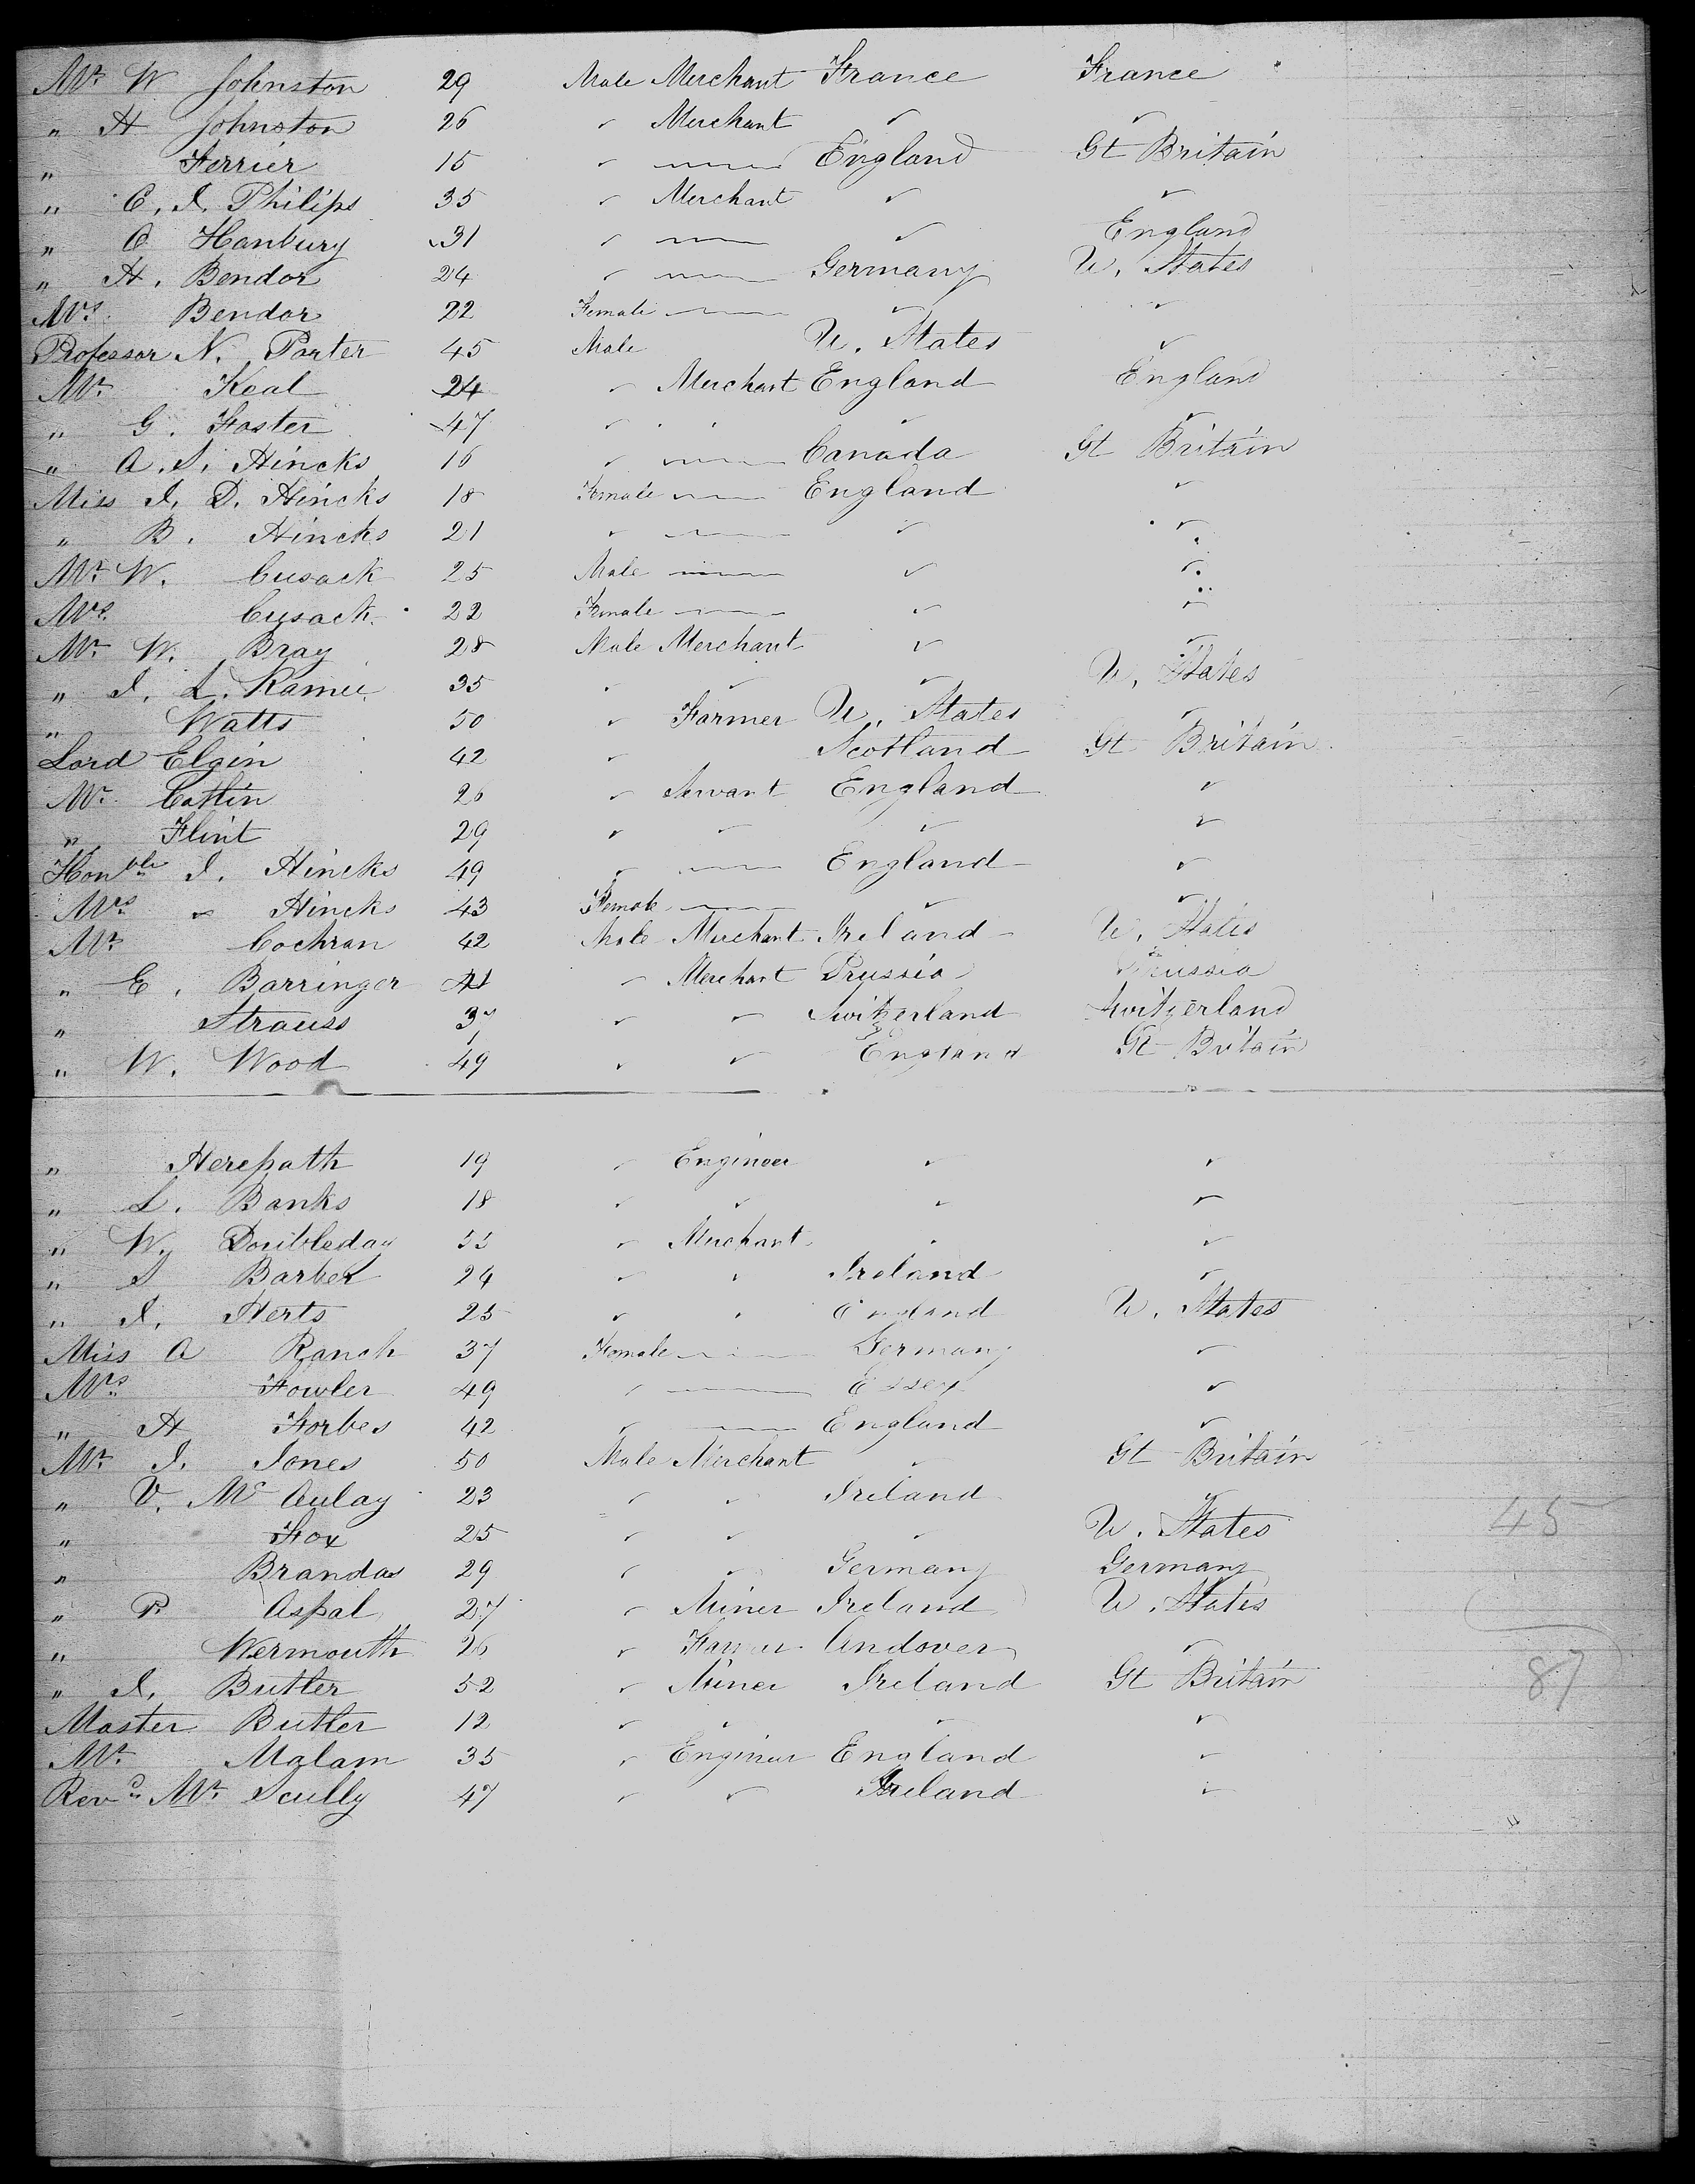 Mr W Johnston 29 Male Merchant France France
" H Johnston 26 " Merchant " "
" Ferrier 15 " —— England Gt Britain
" C. J. Philips 35 " Merchant " "
" C Hanbury 31 " —— " England
" H. Bendor 24 " —— Germany U. States
Mrs Bendor 22 Female —— " "
Professor N. Porter 45 Male U. States "
Mr Keal 24 " Merchant England England
" G. Foster 47 " " " "
" A. S. Hincks 16 " —— Canada Gt Britain
Miss J. D. Hincks 18 Female —— England "
" B. Hincks 21 " —— " "
Mr W. Cusack 25 Male —— " "
Mrs Cusack 22 Female —— " "
Mr W. Bray 28 Male Merchant " "
" J. L. 35 " " " U. States
" Watts 50 " Farmer U. States "
Lord Elgin 42 " Scotland Gt Britain
Mr Catlin 26 " Servant England "
" Flint 29 " " " "
Honble J. Hincks 49 " —— England "
Mrs " Hincks 43 Female —— " "
Mr Cochran 42 Male Merchant Ireland U. States
" E. Barringer " Merchant Prussia Prussia
" Strauss 37 " " Switzerland Switzerland
" W. Wood 49 " " England Gt Britain
" Herepath 19 " Engineer " "
" L. Banks 18 " " " "
" W. Doubleday " Merchant " "
" S Barber 24 " " Ireland "
" J. Herts 25 " " England U. States
Miss A Ranch 37 Female —— Germany "
Mrs Fowler 49 " —— Essex "
" H Forbes 42 " —— England "
Mr J. Jones 50 Male Merchant " Gt Britain
" V. McAulay 23 " " Ireland "
" Fox 25 " " " U. States
" Brandas 29 " " Germany Germany
" P. Aspal 27 " Miner Ireland U. States
" Wermouth 26 " Farmer Andover "
" J. Butler 52 " Miner Ireland Gt Britain
Master Butler 12 " " " "
Mr Malam 35 " Engineer England "
Revd Mr Scully 47 " " Ireland "
45
87